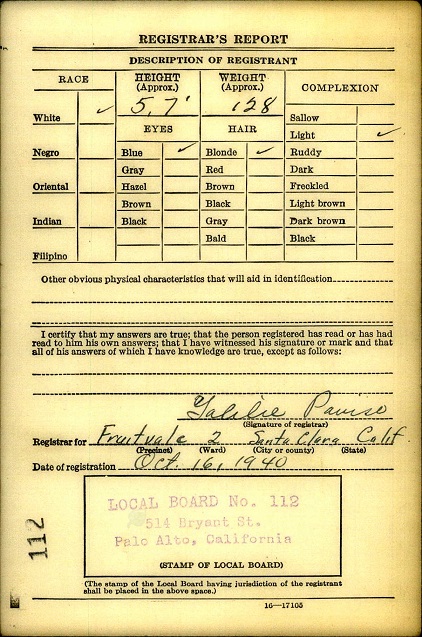 REGISTRAR'S REPORT
DESCRIPTION OF REGISTRANT
RACE
HEIGHT (Approx.)
WEIGHT (Approx.)
COMPLEXION
5, 7' 128
White ✓
Sallow
EYES HAIR
Light ✓
Negro Blue ✓ Blonde ✓ Ruddy
Gray Red Dark
Oriental Hazel Brown Freckled
Brown Black Light brown
Indian Black Gray Dark brown
Bald Black
Filipino
Other obvious physical characteristics that will aid in identification
I certify that my answers are true; that the person registered has read or has had
read to him his own answers; that I have witnessed his signature or mark and that
all of his answers of which I have knowledge are true, except as follows:
(Signature of registrar)
Registrar for Fruitvale 2 Santa Clara Calif
(Precinct) (Ward) (City or county) (State)
Date of registration Oct. 16, 1940
LOCAL BOARD No. 112
514 Bryant St.
Palo Alto, California
(STAMP OF LOCAL BOARD)
112
(The stamp of the Local Board having jurisdiction of the registrant
shall be placed in the above space.)
16—17105